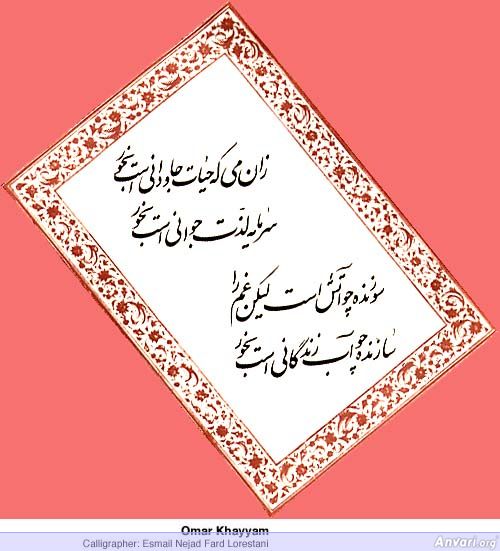 زان می که حیات جاودانی است بخور
سرمایه لذت جوانی است بخور
سوزنده چو آتش است لیکن غم را
سازنده چو آب زندگانی است بخور
Omar Khayyam
Calligrapher: Esmail Nejad Fard Lorestani
Anvari.org